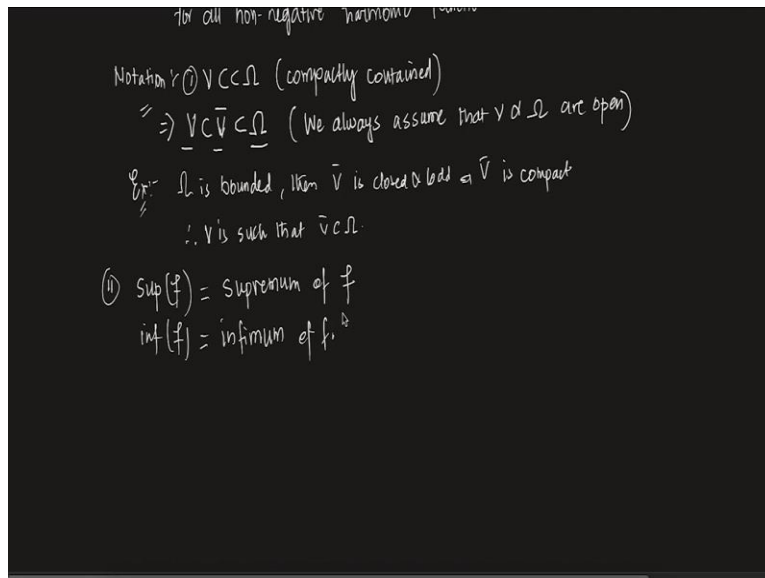 for all non-negative harmonic
Notation :- ① V ⊂⊂ Ω (compactly contained)
⇒) V ⊂ V̄ ⊂ Ω (We always assume that V & Ω are open)
Ex:- Ω is bounded, then V̄ is closed & bdd ⇒ V̄ is compact
∴ V is such that V̄ ⊂ Ω.
⑪ Sup(f) = Supremum of f
inf(f) = infimum of f.